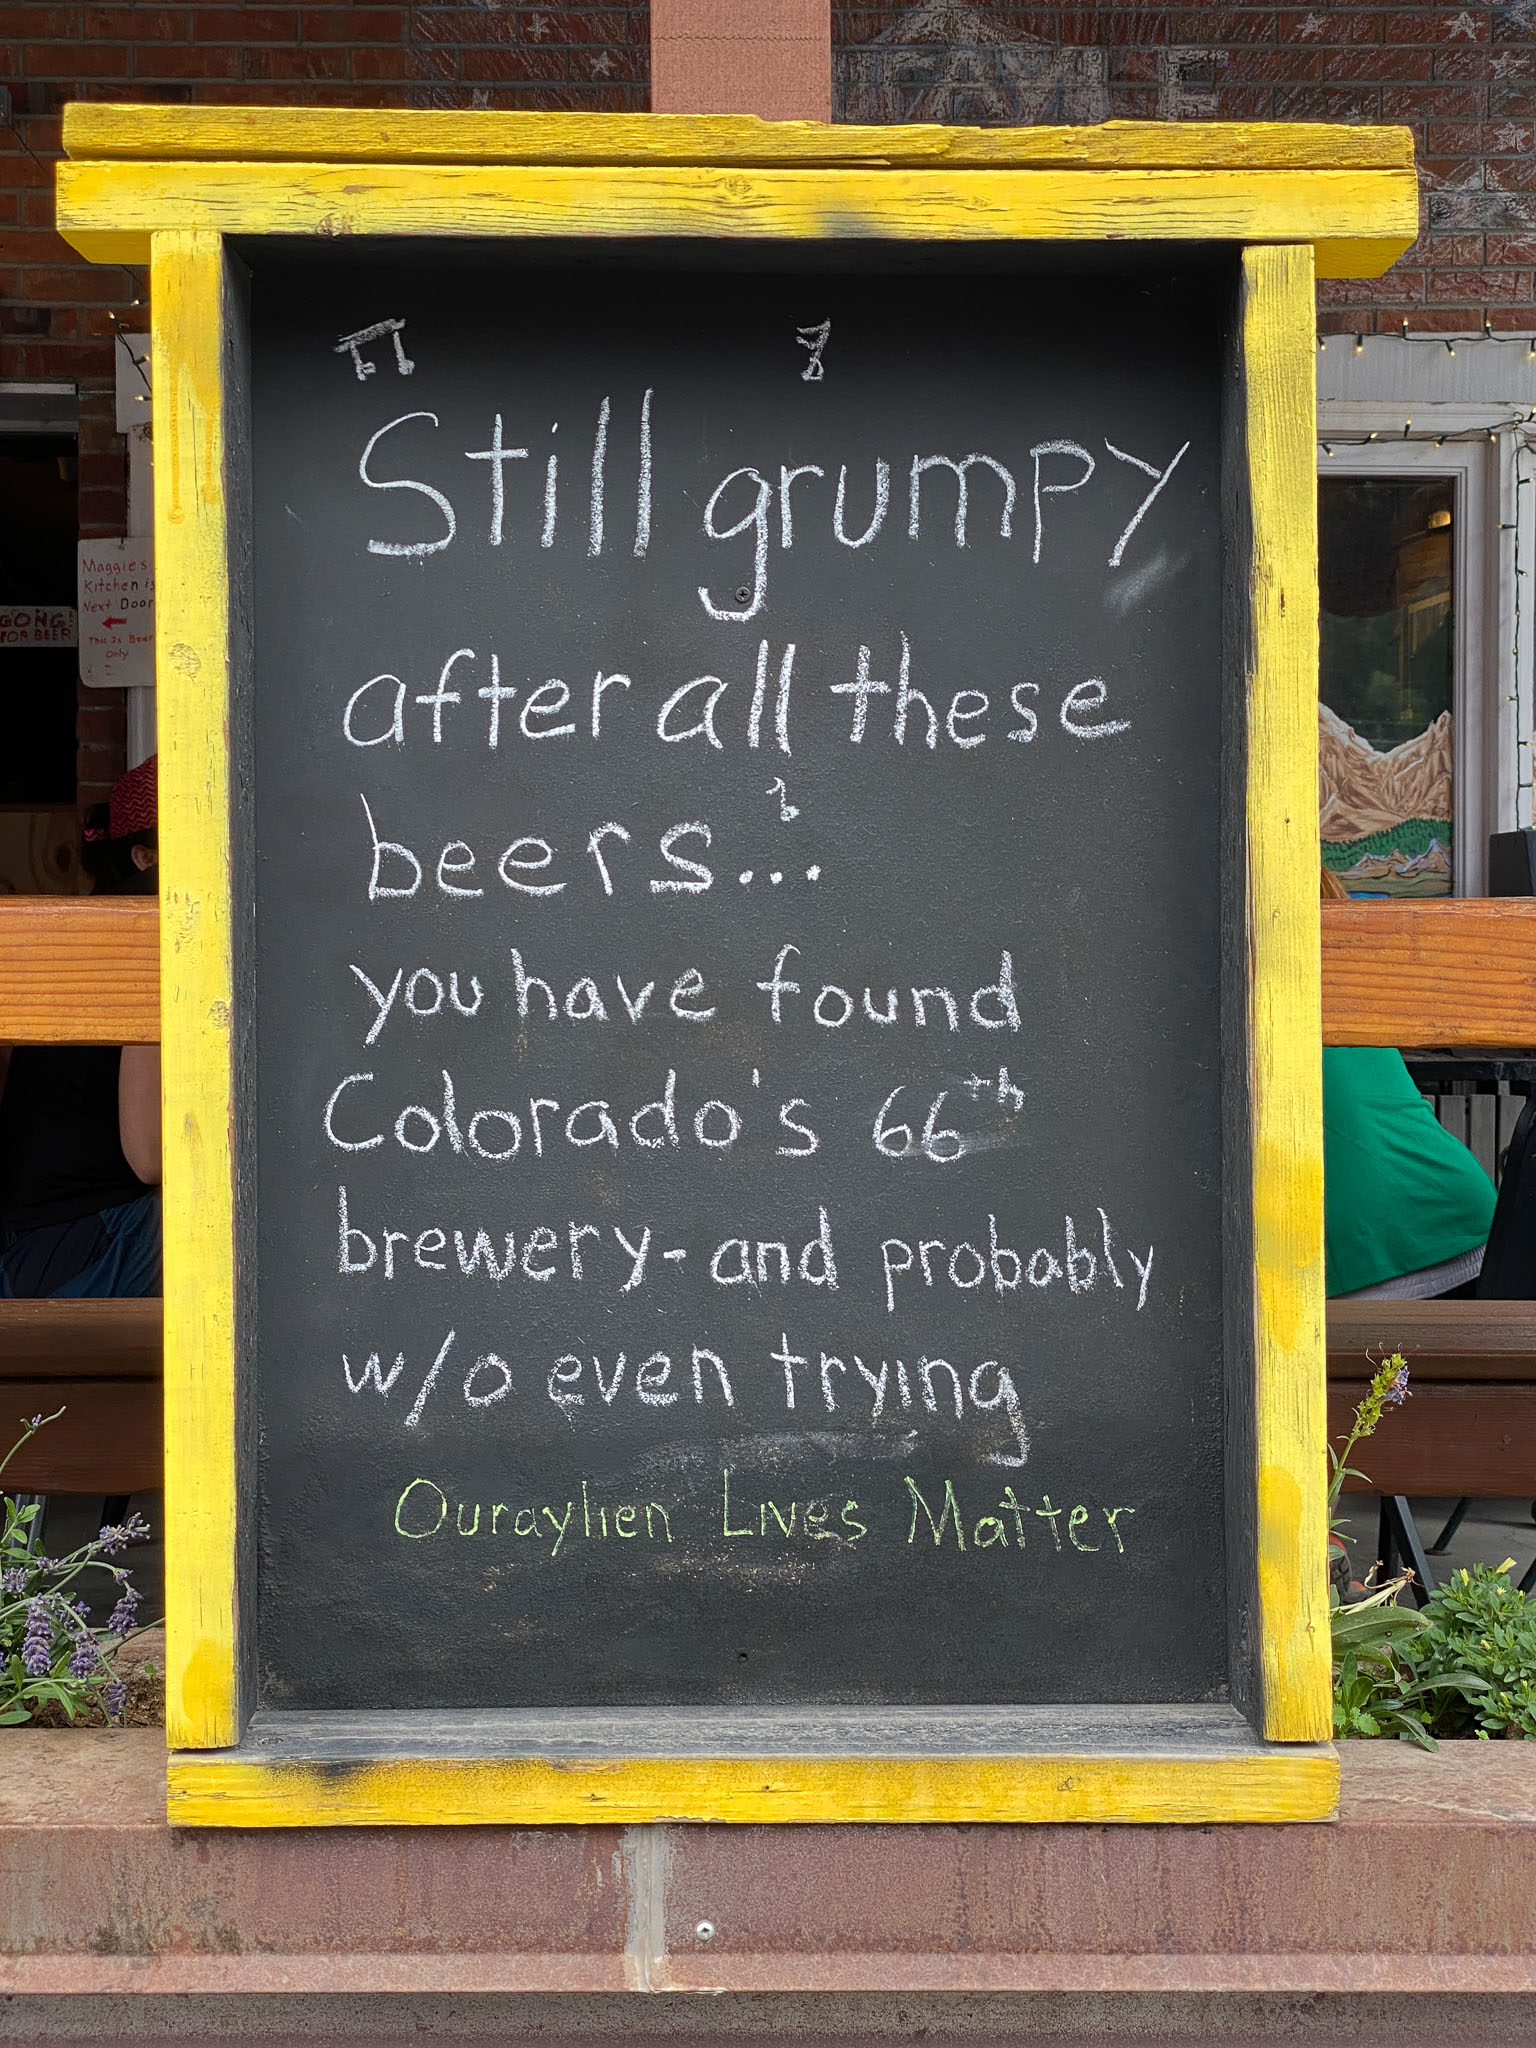 Still grumpy
after all these
beers...
you have found
Colorado's 66th
brewery-and probably
w/o even trying
Ouraylien Lives Matter
Maggies
Kitchen is
Next Door
This Is Beer
Only
GONG!
FOR BEER